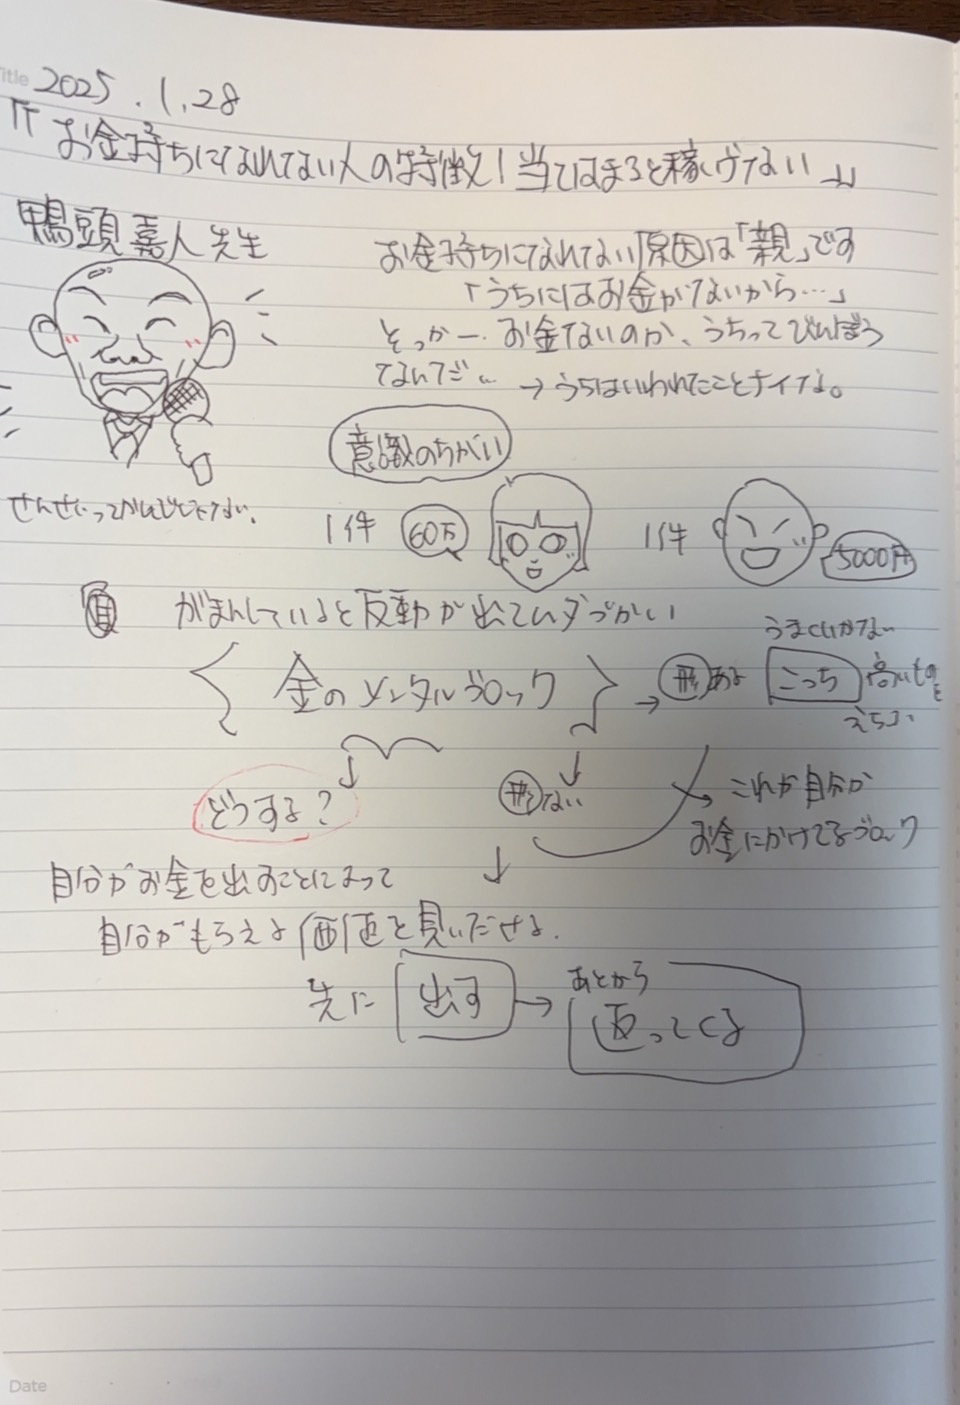 Title 2025.1.28
『お金持ちになれてない人の特徴！当てはまると稼げない』
鴨頭嘉人先生
お金持ちになれてない原因は「親」です
「うちにはお金がないから…」
そっかー、お金ないのか、うちってびんぼう
なんだ。
→うちはいわれたことナイな。
意識のちがい
せんせいってかんじじゃない。
1件 60万
1件 5000円
がまんしていると反動が出てムダづかい
金のメンタルブロック
→形ある
うまくいかない
こっち 高いもの
えらぶ
どうする？
形ない
これが自分が
お金にかけてるブロック
自分がお金を出すことによって
自分がもらえる価値を見いだせる.
先に 出す →
あとから
返ってくる
Date